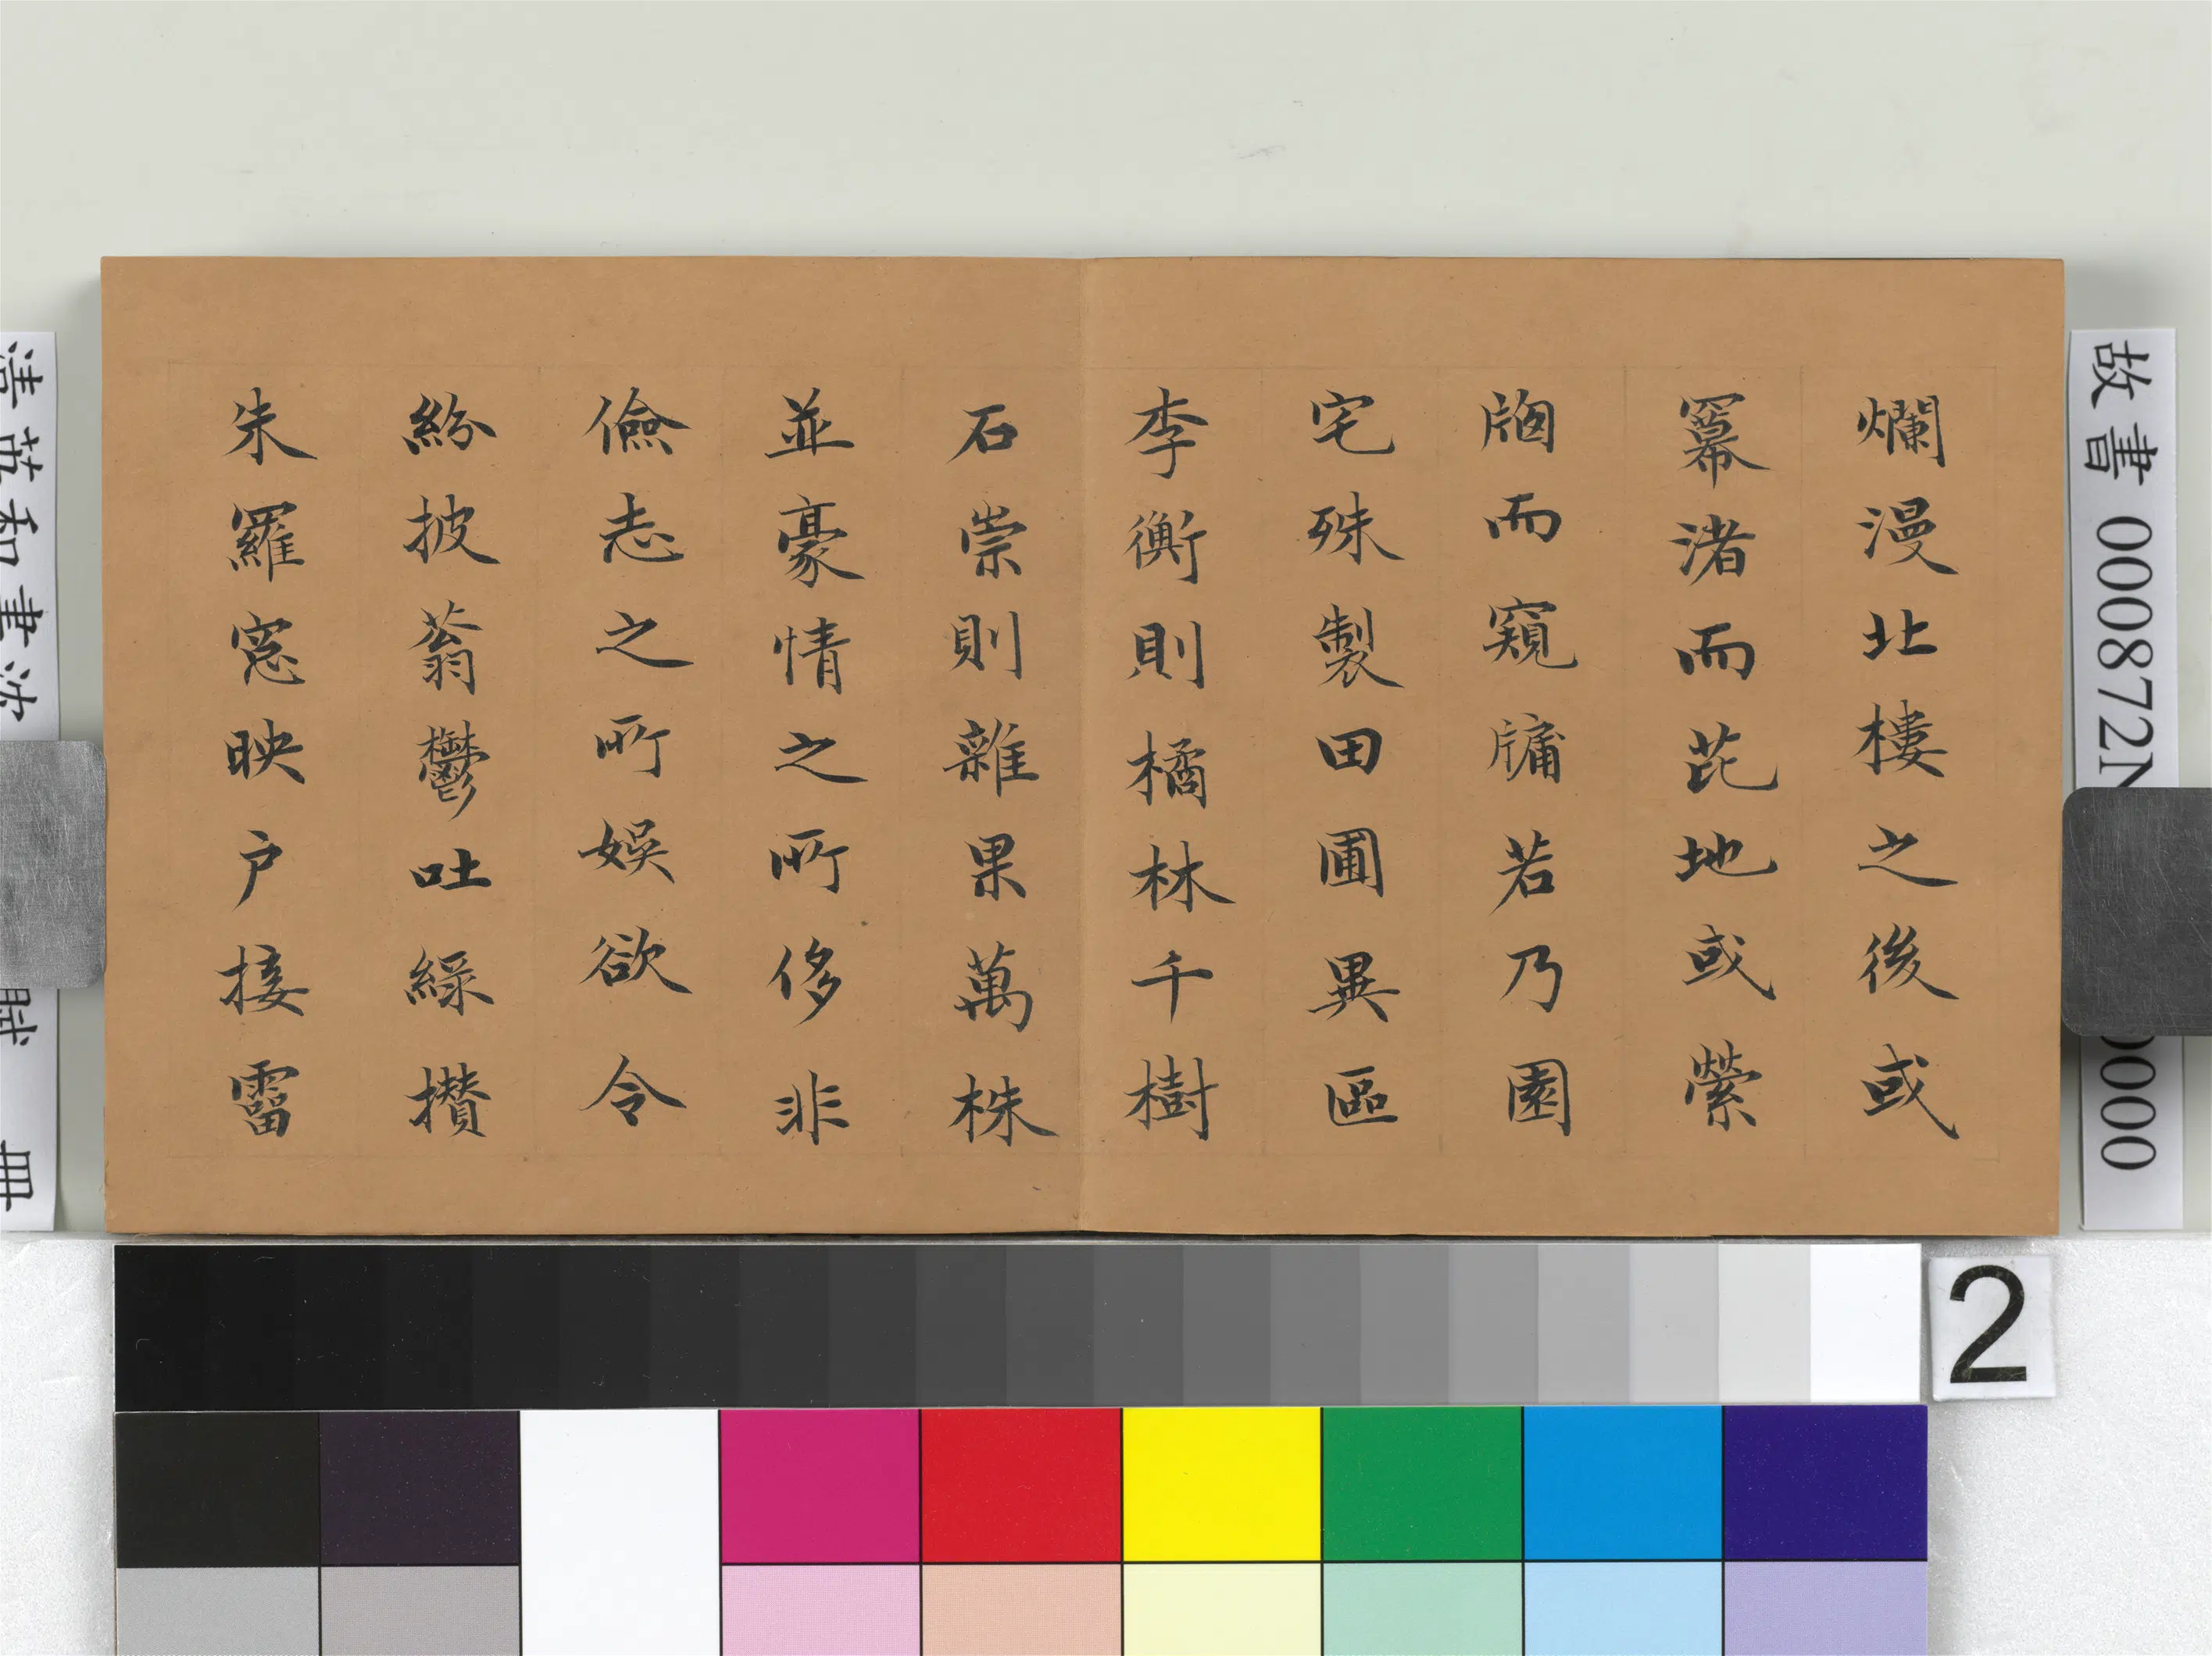 爛漫北樓之後或
羃渚而芘地或縈
牕而窺牗若乃園
宅殊製田圃異區
李衡則橘林千樹
石崇則雜果萬株
並豪情之所侈非
儉志之所娛欲令
紛披蓊鬱吐綠攢
朱羅窓映戶接霤
故書 000872N
0000
清英和書沈
賦 冊
2